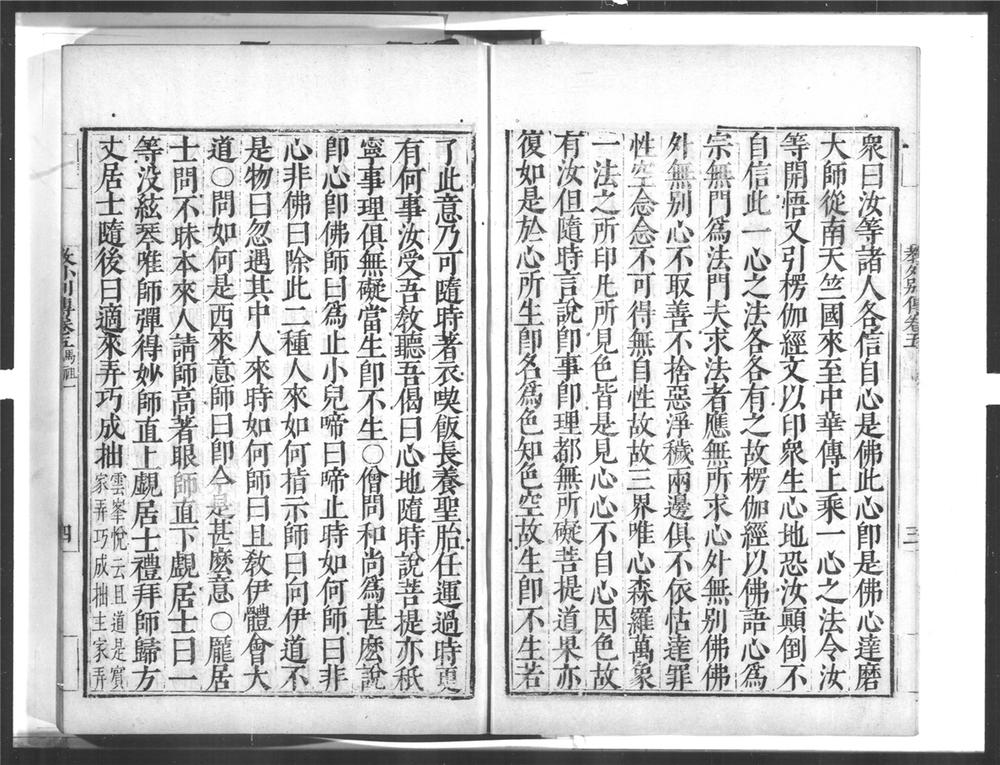 教外別傳卷五
三
衆曰汝等諸人各信自心是佛此心即是佛心達磨
大師從南天竺國來至中華傳上乘一心之法令汝
等開悟又引楞伽經文以印衆生心地恐汝顛倒不
自信此一心之法各各有之故楞伽經以佛語心爲
宗無門爲法門夫求法者應無所求心外無別佛佛
外無別心不取善不捨惡淨穢兩邊俱不依怙達罪
性空念念不可得無自性故故三界唯心森羅萬象
一法之所印凡所見色皆是見心心不自心因色故
有汝但隨時言說即事即理都無所礙菩提道果亦
復如是於心所生即名爲色知色空故生即不生若
了此意乃可隨時著衣喫飯長養聖胎任運過時更
有何事汝受吾敎聽吾偈曰心地隨時說菩提亦秖
寧事理俱無礙當生即不生○僧問和尚爲甚麽說
即心即佛師曰爲止小兒啼曰啼止時如何師曰非
心非佛曰除此二種人來如何指示師曰向伊道不
是物曰忽遇其中人來時如何師曰且敎伊體會大
道○問如何是西來意師曰即今是甚麽意○龐居
士問不昧本來人請師高著眼師直下覷居士曰一
等没絃琴唯師彈得妙師直上覷居士禮拜師歸方
丈居士隨後曰適來弄巧成拙
雲峯悅云且道是賓
家弄巧成拙主家弄
教外別傳卷五 馬祖一
四